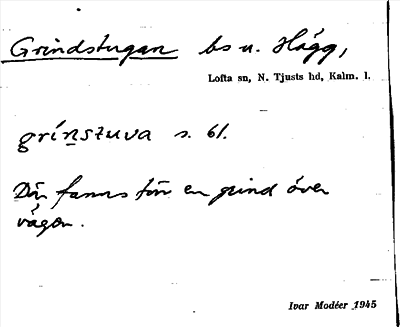 Grindstugan bs u. Hägg,
Lofta sn, N. Tjusts hd, Kalm. l.
grínstuva s. 61.
Där fanns förr en grind över
vägen.
Ivar Modéer 1945